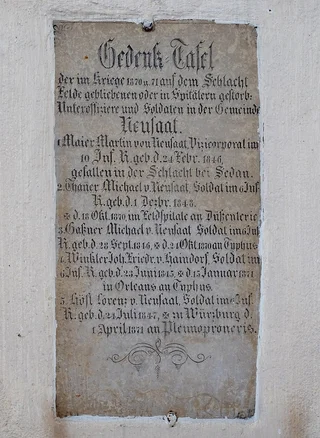 Gedenk Tafel
der im Kriege 1870 u. 71 auf dem Schlacht
Felde gebliebenen oder in Spitälern gestorb:
Unteroffiziere und Soldaten in der Gemeinde
Neusaat.
1 Maier Martin von Neusaat Vizicorporal im
10 Inf. R. geb. d. 24 Febr. 1846,
gefallen in der Schlacht bei Sedan.
2. Thaner Michael v. Neusaat, Soldat im 6 Inf
R. geb. d. 1 Dezbr. 1848.
✠ d. 18 Okt. 1870, im Feldspitale an Disienterie
3. Gaßner Michael v. Neusaat Soldat im 6. Inf
R. geb. d. 28 Sept. 1846, ✠ d. 24 Okt 1870 an Typhus
4. Winkler Joh. Friedr. v. Haindorf, Soldat im
6 Inf. R. geb. d. 23 Juni 1845, ✠ d. 15 Januar 1871
in Orleans an Typhus.
5. Höst Lorenz v. Neusaat, Soldat im 6. Inf.
R. geb. d. 24 Juli 1847, ✠ in Würzburg d.
1 April 1871 an Pleunoproneris.